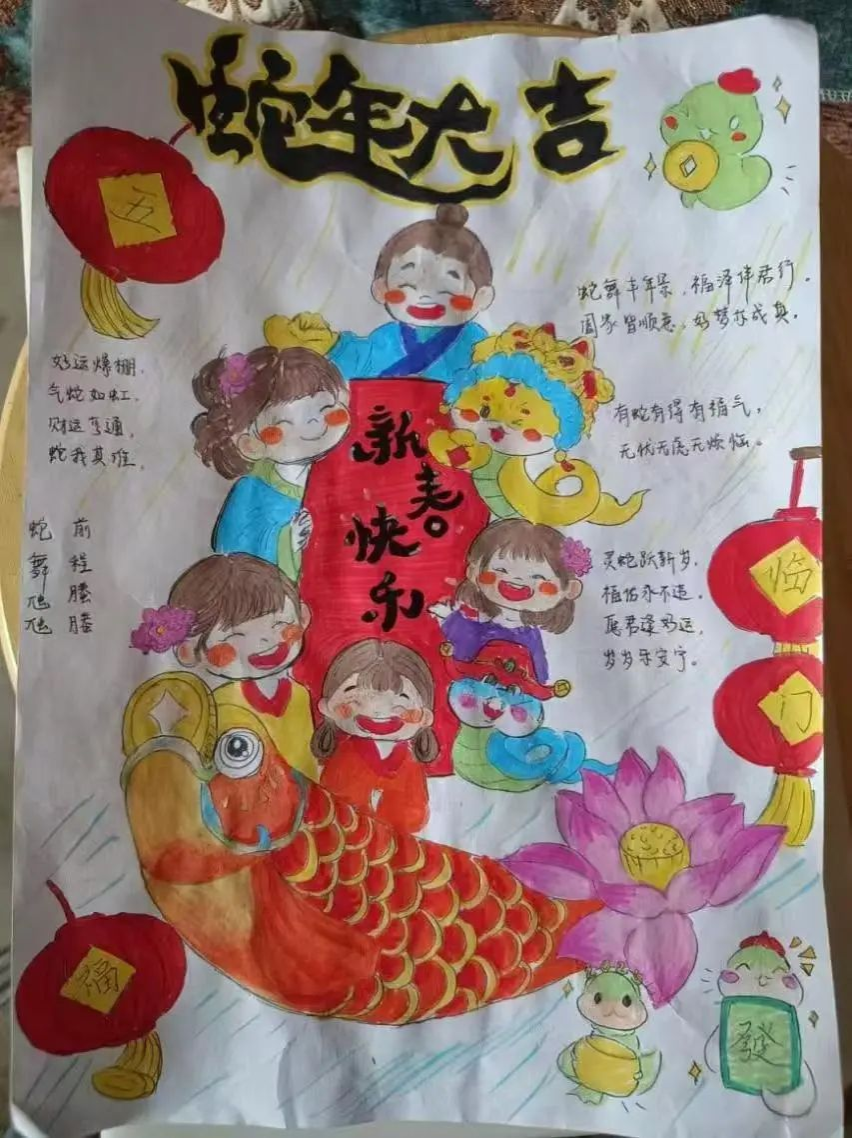 蛇年大吉
五
蛇舞丰年景，福泽伴君行。
家皆顺意，好梦亦成真。
好运爆棚，
气蛇如虹，
财运亨通，
蛇我其谁，
有蛇有得有福气，
无忧无虑无烦恼。
新春快乐
蛇舞
前程腾腾
灵蛇跃新岁，
佑永不迟。
愿君逢好运，
岁岁乐安宁。
临
门
福
發